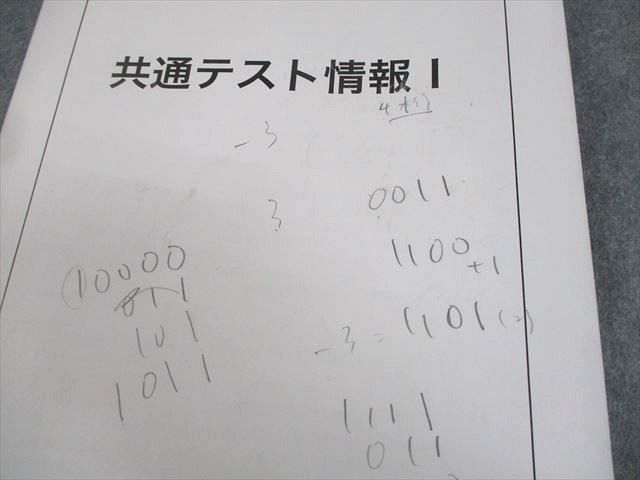 共通テスト情報Ⅰ
4桁
-3
3
0011
1100
+1
-3 = 1101(2)
10000
011
101
1011
1111
011